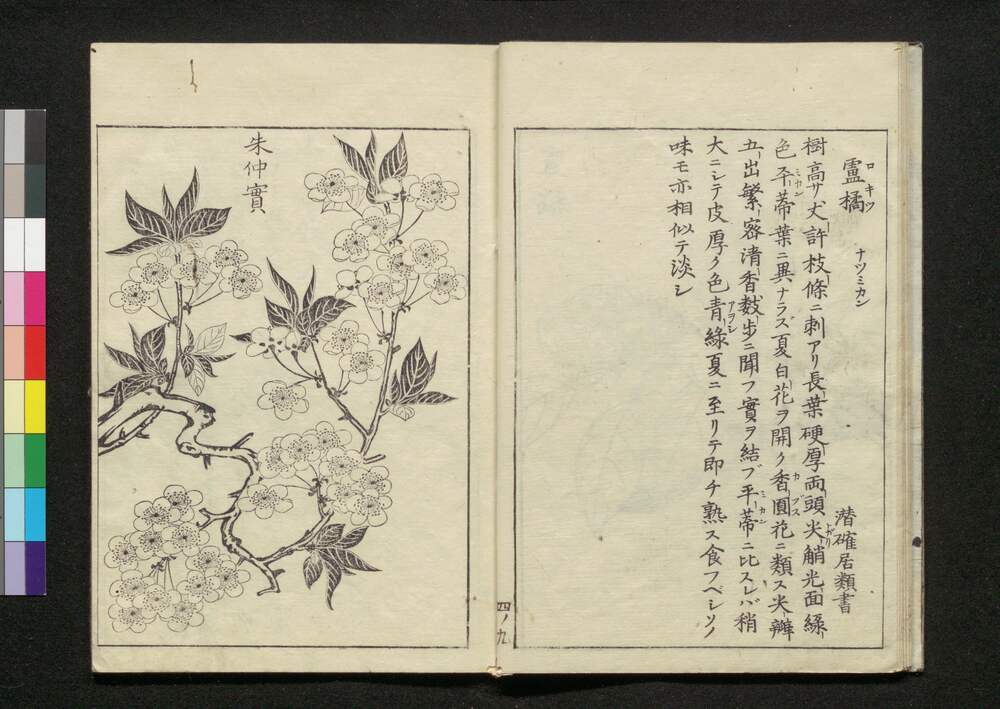 盧橘 ロキツ ナツミカン 潜確居類書
樹高サ丈許枝條ニ刺アリ長葉硬厚両頭尖觧光面緑
色平蒂葉ニ異ナラズ夏白花ヲ開ク香圓花ニ類ス尖瓣
五出繁密清香数歩ニ聞フ實ヲ結ブ平蒂ニ比スレバ稍
大ニシテ皮厚ク色青緑夏ニ至リテ即チ熟ス食フベシソノ
味モ亦相似テ淡シ
四ノ九
朱仲實